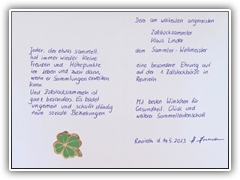 Jeder, der etwas sammelt
hat immer wieder kleine
Freuden und Höhepunkte
im Leben und auch dann,
wenn er Sammlungen erweitern
kann.
Und Zollstocksammeln ist
ganz besonders. Es bildet
ungemein und schafft ständig
neue soziale Beziehungen
Dem am weitesten angereisten
Zollstocksammler
Klaus Lincke
dem Sammler-Weltmeister
eine besondere Ehrung auf
auf der 1. Zollstockbörse in
Mit besten Wünschen für
Gesundheit, Glück und
weiterer Sammelleidenschaft
2013